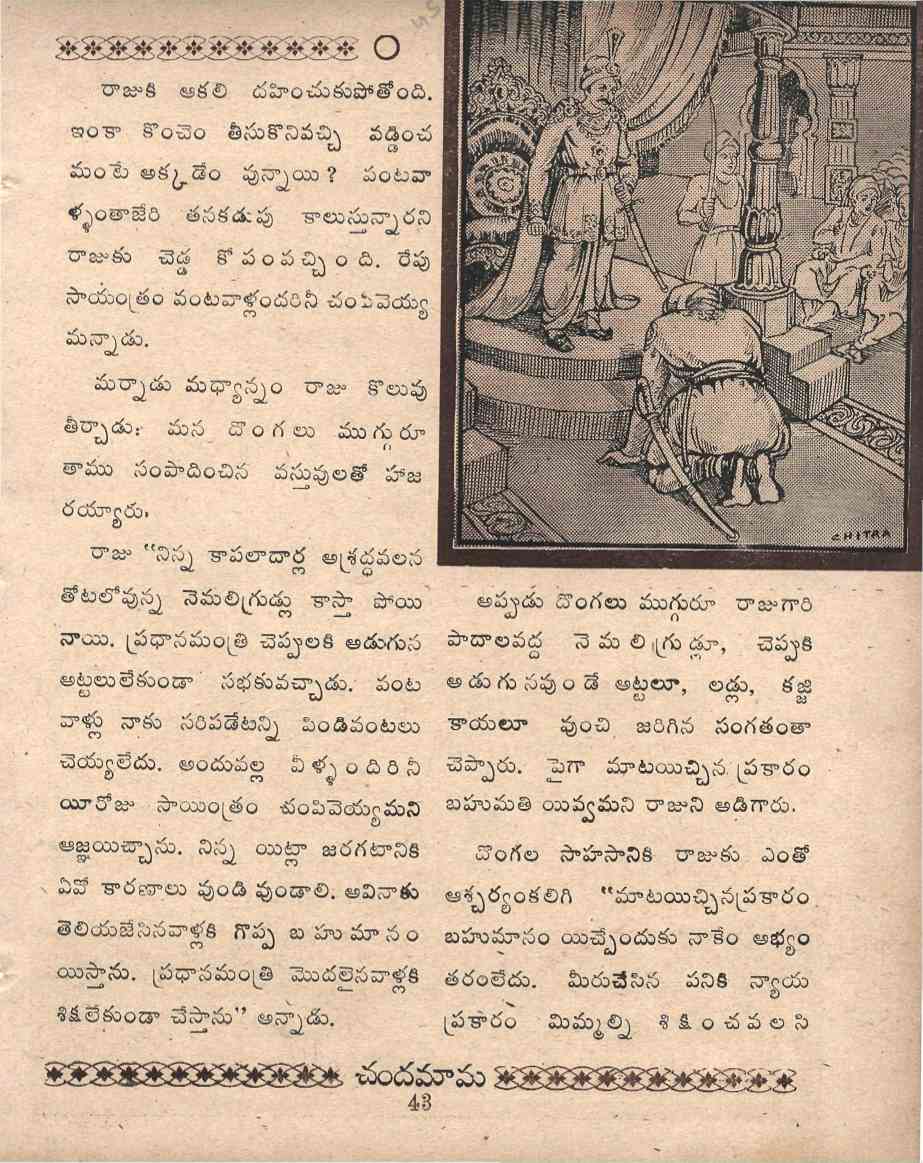 రాజుకి ఆకలి దహించుకుపోతోంది.
ఇంకా కొంచెం తీసుకొనివచ్చి వడ్డించ
మంటే అక్కడేం వున్నాయి? వంటవా
ళ్ళంతాజేరి తనకడుపు కాలుస్తున్నారని
రాజుకు చెడ్డ కోపంవచ్చింది. రేపు
సాయంత్రం వంటవాళ్లందరినీ చంపివెయ్య
మన్నాడు.
మర్నాడు మధ్యాన్నం రాజు కొలువు
తీర్చాడు: మన దొంగలు ముగ్గురూ
తాము సంపాదించిన వస్తువులతో హాజ
రయ్యారు.
రాజు "నిన్న కాపలాదార్ల అశ్రద్ధవలన
తోటలోవున్న నెమలిగ్రుడ్లు కాస్తా పోయి
నాయి. ప్రధానమంత్రి చెప్పులకి అడుగున
అట్టలులేకుండా సభకువచ్చాడు. వంట
వాళ్లు నాకు సరిపడేటన్ని పిండివంటలు
చెయ్యలేదు. అందువల్ల వీళ్ళందిరినీ
యీరోజు సాయింత్రం చంపివెయ్యమని
ఆజ్ఞయిచ్చాను. నిన్న యిట్లా జరగటానికి
ఏవో కారణాలు వుండి వుండాలి. అవినాకు
తెలియజేసినవాళ్లకి గొప్ప బహుమానం
యిస్తాను. ప్రధానమంత్రి మొదలైనవాళ్లకి
శిక్షలేకుండా చేస్తాను" అన్నాడు.
CHITRA
అప్పుడు దొంగలు ముగ్గురూ రాజుగారి
పాదాలవద్ద నెమలిగ్రుడ్లూ, చెప్పుకి
అడుగునవుండే అట్టలూ, లడ్లు, కజ్జి
కాయలూ వుంచి జరిగిన సంగతంతా
చెప్పారు. పైగా మాటయిచ్చిన ప్రకారం
బహుమతి యివ్వమని రాజుని అడిగారు.
దొంగల సాహసానికి రాజుకు ఎంతో
ఆశ్చర్యంకలిగి "మాటయిచ్చినప్రకారం
బహుమానం యిచ్చేందుకు నాకేం అభ్యం
తరంలేదు. మీరుచేసిన పనికి న్యాయ
ప్రకారం మిమ్మల్ని శిక్షించవలసి
చందమామ
43